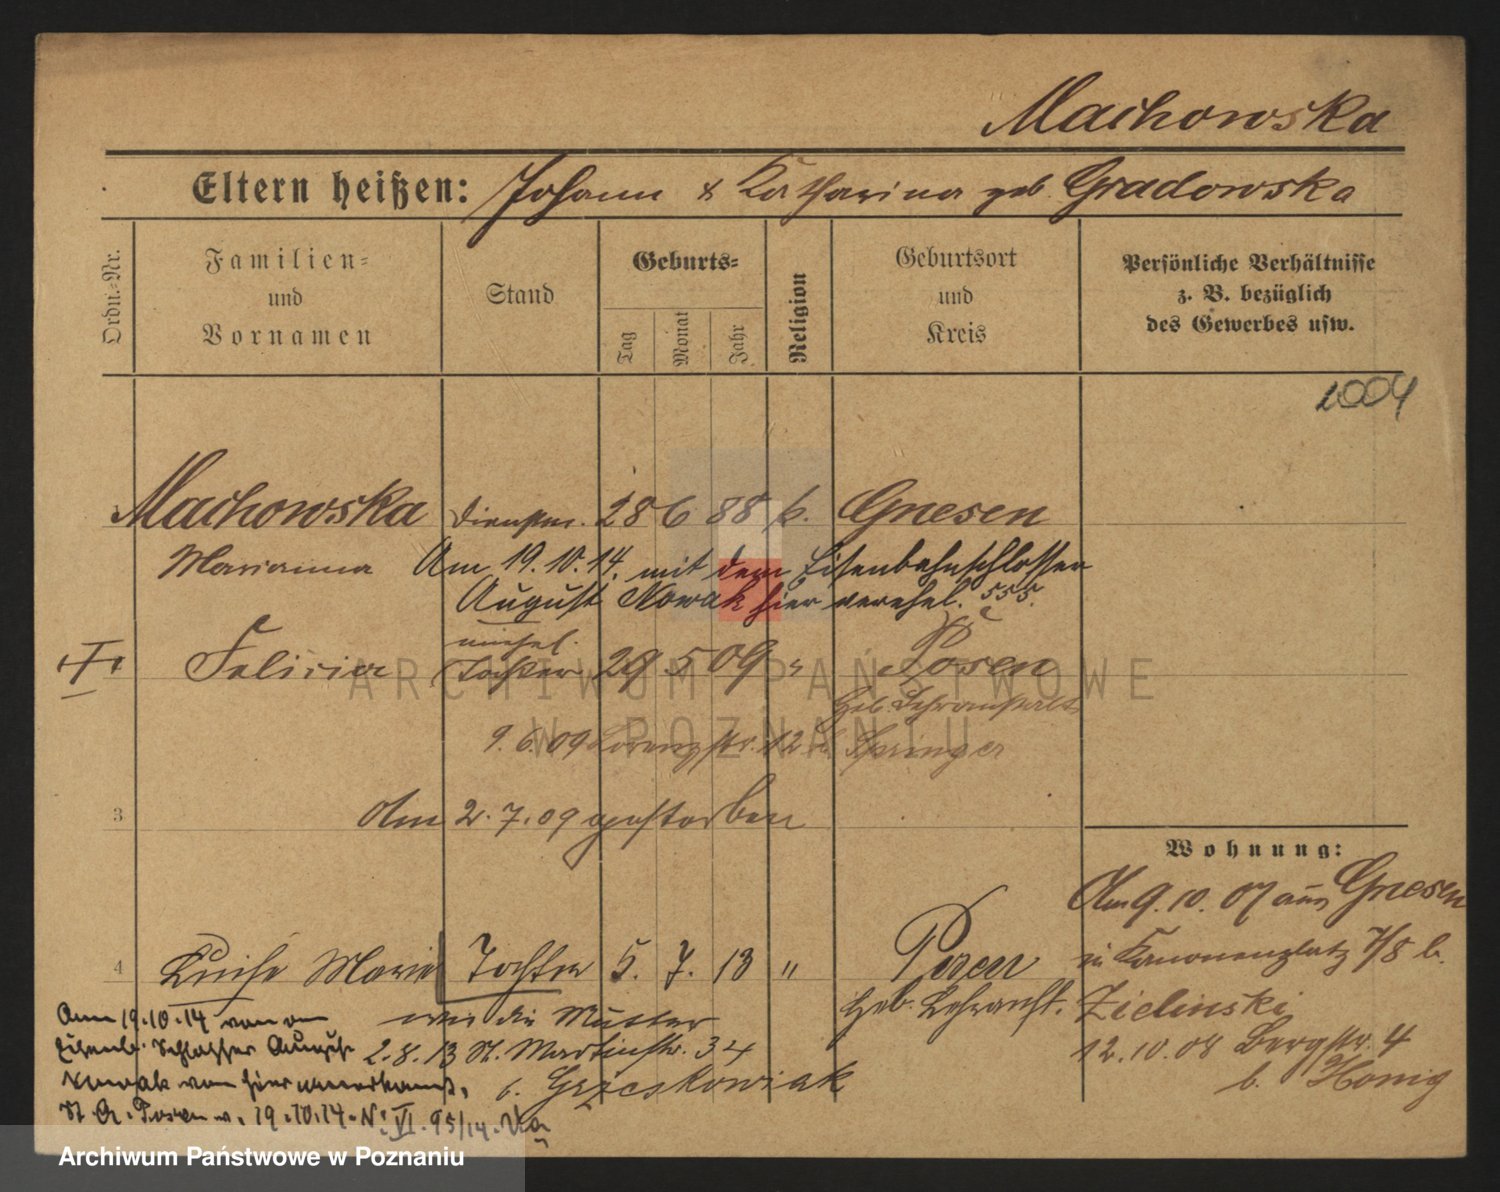 Machowska
Eltern heißen: Johann & Katharina geb. Gradowska
Ordn.=Nr.
Familien=
und
Vornamen
Stand
Geburts=
Tag
Monat
Jahr
Religion
Geburtsort
und
Kreis
Persönliche Verhältnisse
z. B. bezüglich
des Gewerbes usw.
2004
Machowska Dienstm. 28 6 88 k. Gnesen
Marianna Am 19.10.14. mit dem Eisenbahnschlosser
August Nowak hier verehel. 555.
unehel.
Felicia Tochter 29 5 09 " Posen
Heb. Lehranstalt
9.6.09 Lorenzstr. 12 b. Springer
3
Am 2.7.09 gestorben
Wohnung:
Am 9.10.07 aus Gnesen
in Kanonenplatz 7/8 b.
Zielinski
12.10.08 Bergstr. 4
b. Honig
4 Luise Marie Tochter 5. 7. 13 " Posen
Heb. Lehranst.
wie die Mutter
2.8.13 St. Martinstr. 34
b. Grzeskowiak
Am 19.10.14 von
Eisenb. Schlosser August
Nowak von hier anerkannt.
St. A. Posen v. 19.10.14. Nr. VI. 95/14.
ARCHIWUM PAŃSTWOWE
W POZNANIU
Archiwum Państwowe w Poznaniu